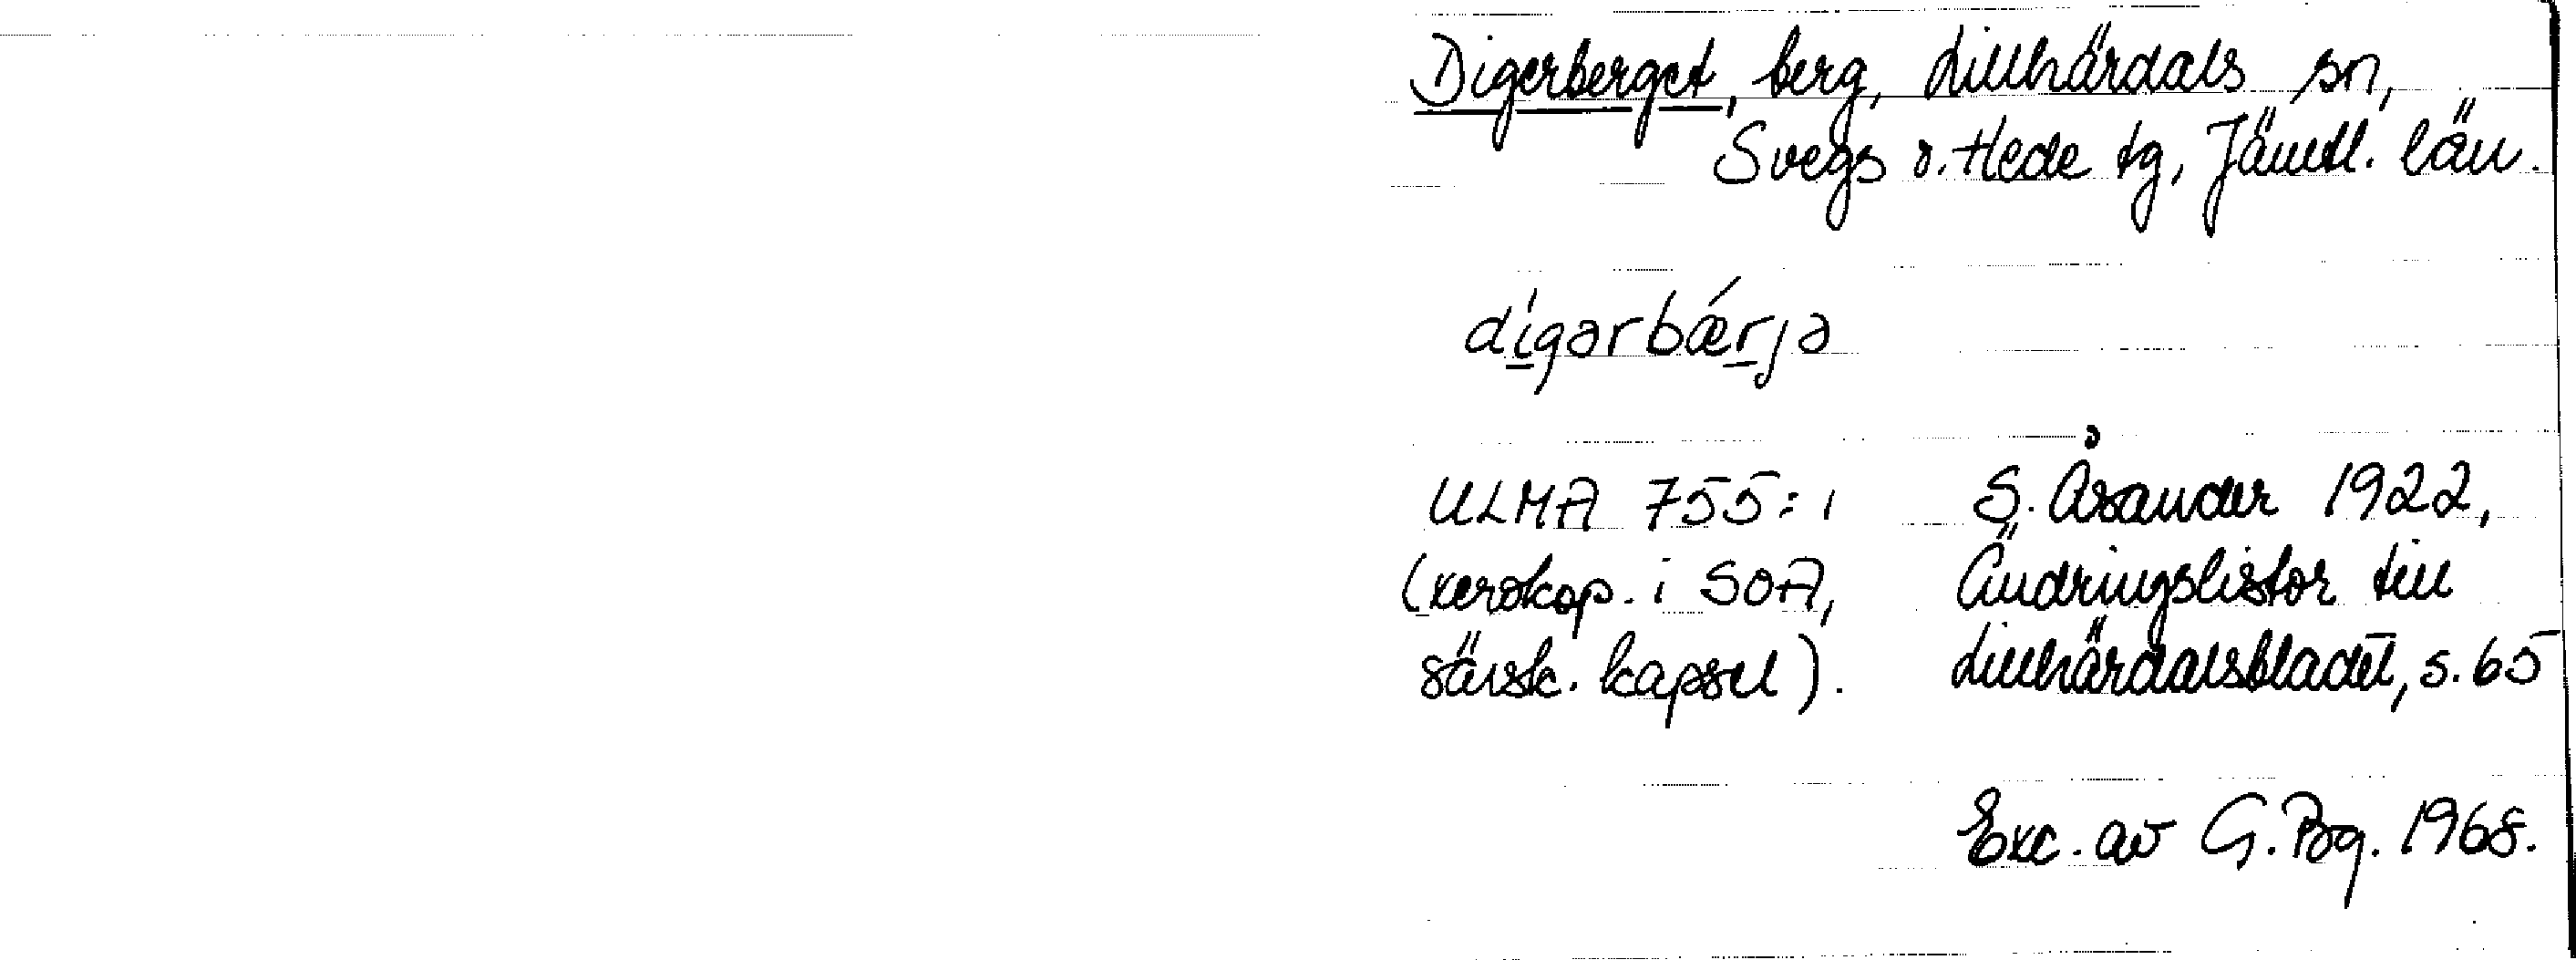 Digerberget, berg, Lillhärdals sn,
Svegs o. Hede tg, Jämtl. län.
dígərbǽrjə
ULMA 755:1
(xerokop. i SOA,
särsk. kapsel).
S. Åsander 1922,
Ändringslistor till
Lillhärdalsbladet, s. 65
Exc. av G. Bg. 1968.